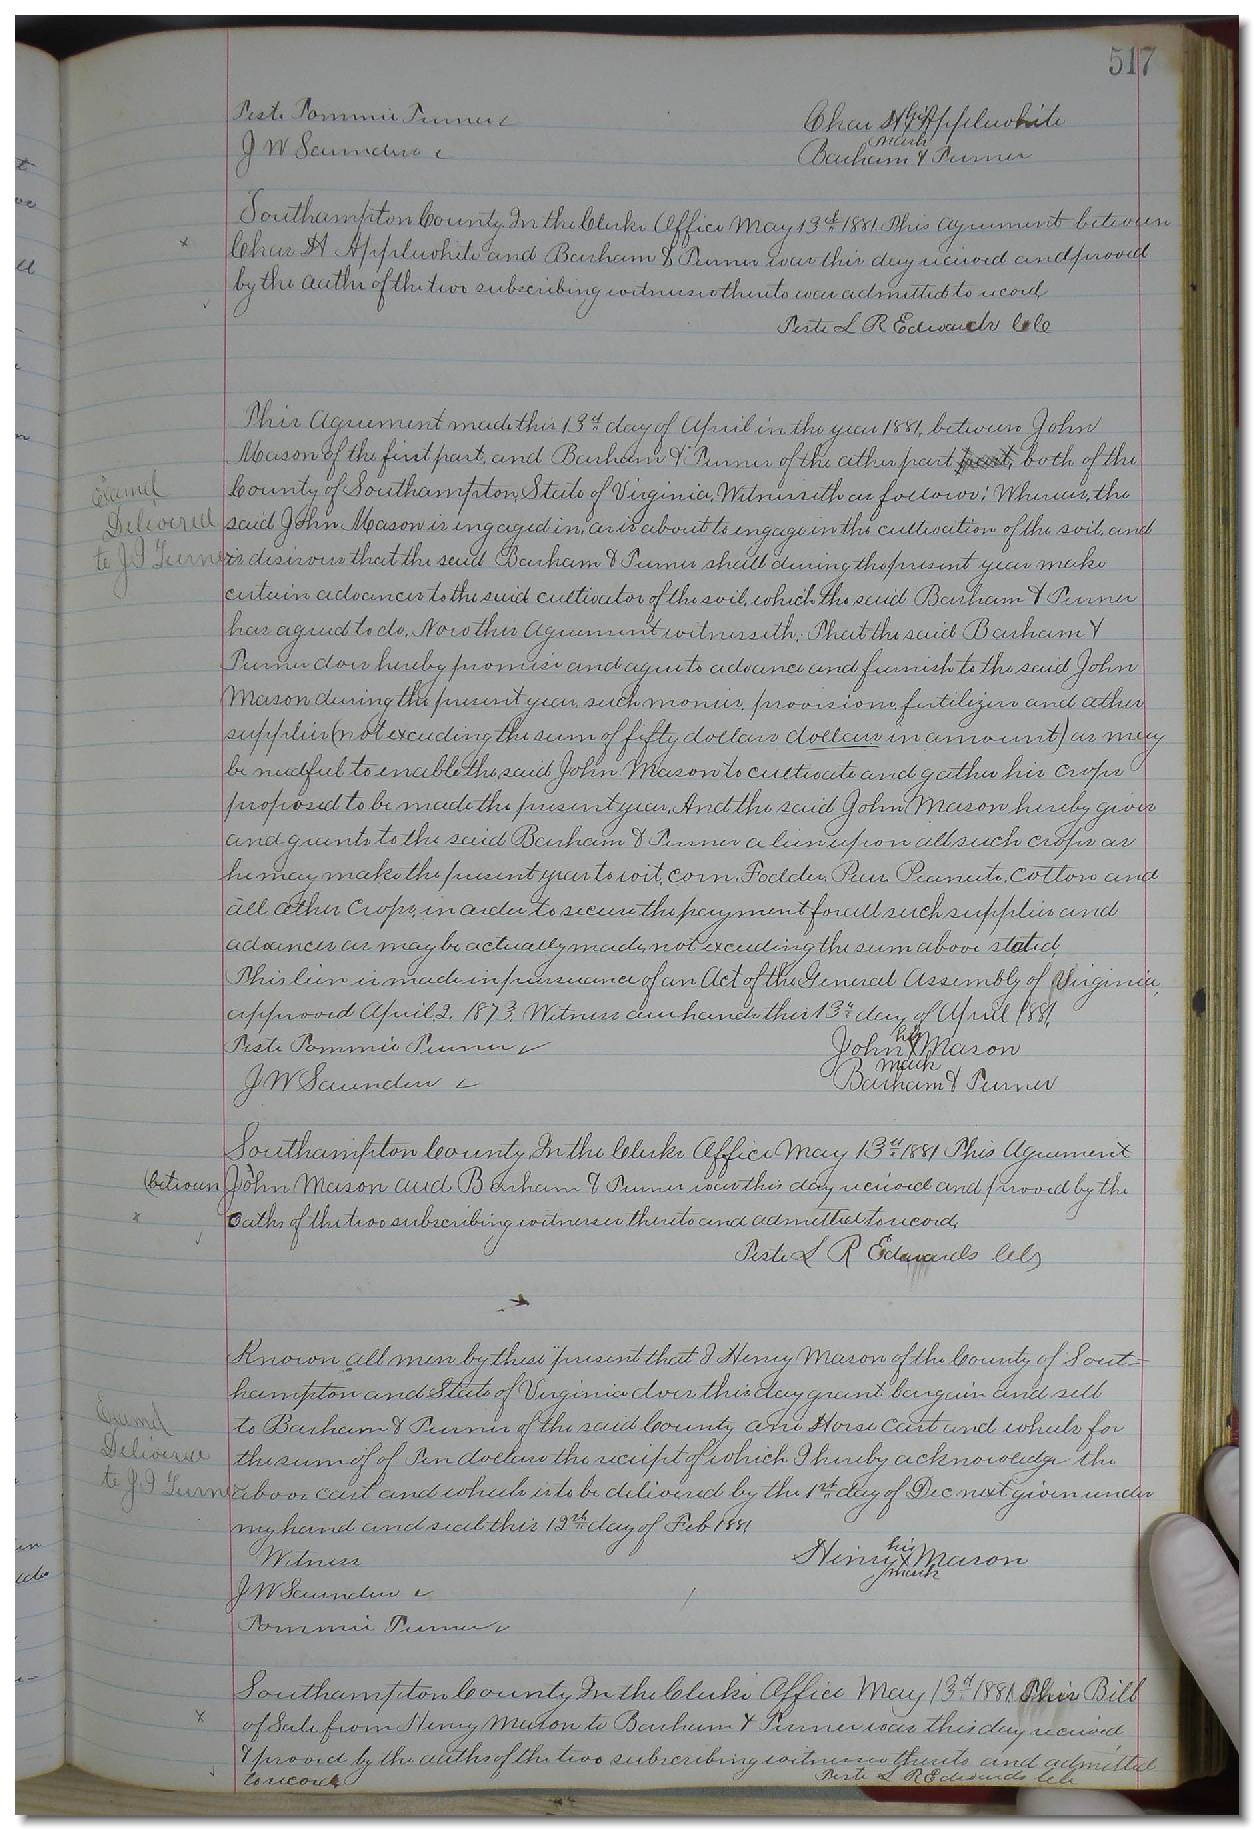 517
Teste Tommie Turner
Chas H his Applewhite
J W Saunders
mark
Barham & Turner
Southampton County In the Clerks Office May 13th 1881 This Agreement between
x
Chas H Applewhite and Barham & Turner was this day received and proved
by the oaths of the two subscribing witnesses thereto was admitted to record
Teste L R Edwards CC
This Agreement made this 13th day of April in the year 1881, between John
Mason of the first part, and Barham & Turner of the other part part, both of the
County of Southampton, State of Virginia, Witnesseth as follows: Whereas, the
Examd
Delivered
to J I Turner
said John Mason is engaged in, or is about to engage in the cultivation of the soil, and
is desirous that the said Barham & Turner shall during the present year make
certain advances to the said cultivator of the soil, which the said Barham & Turner
has agreed to do, Now this Agreement witnesseth: That the said Barham &
Turner does hereby promise and agree to advance and furnish to the said John
Mason during the present year, such monies, provisions, fertilizers and other
supplies (not exceeding the sum of fifty dollars dollars in amount) as may
be needful to enable the said John Mason to cultivate and gather his crops
proposed to be made the present year, And the said John Mason hereby gives
and grants to the said Barham & Turner a lien upon all such crops as
he may make the present year to wit, corn, Fodder, Peas, Peanuts, Cotton and
all other crops, in order to secure the payment for all such supplies and
advances as may be actually made, not exceeding the sum above stated,
This lien is made in pursuance of an Act of the General Assembly of Virginia,
approved April 2, 1873. Witness our hands this 13th day of April 1881,
Teste Tommie Turner
John his X Mason
J W Saunders
mark
Barham & Turner
Southampton County In the Clerks Office May 13th 1881 This Agreement
between John Mason and Barham & Turner was this day received and proved by the
x
Oaths of the two subscribing witnesses thereto and admitted to record,
Teste L R Edwards CC
Known all men by these present that I Henry Mason of the County of Sout=
hampton and State of Virginia does this day grant bargain and sell
to Barham & Turner of the said County one Horse cart and wheels for
Examd
Delivered
to J I Turner
the sum of of Ten dollars the receipt of which I hereby acknowledge the
above cart and wheels is to be delivered by the 1st day of Dec next given under
my hand and seal this 12th day of Feb 1881
Witness
Henry his X Mason
mark
J W Saunders
Tommie Turner
Southampton County In the Clerks Office May 13th 1881 This Bill
x
of Sale from Henry Mason to Barham & Turner was this day received
& proved by the oaths of the two subscribing witnesses thereto and admitted
to record
Teste L R Edwards CC